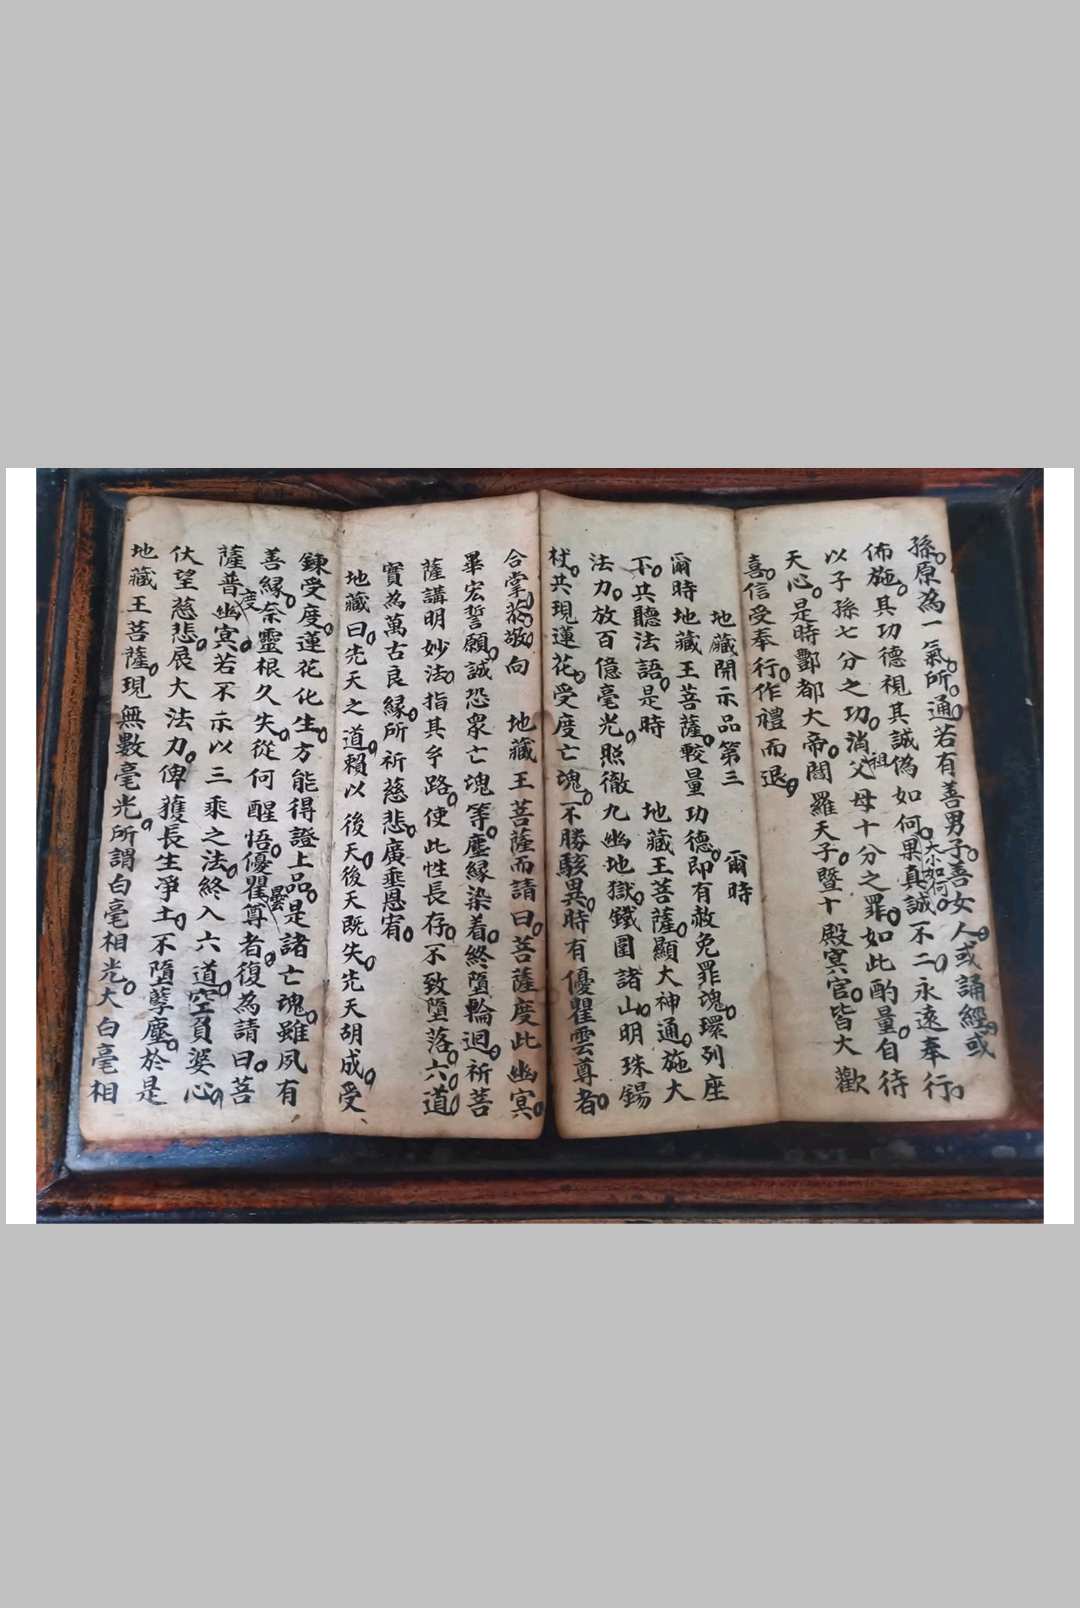 孫。原為一氣。所。通。若有善男子。善女人。或誦經。或
佈施。其功德視其誠偽如何。果大小如何。真誠不二。永遠奉行。
以子孫七分之功。消父祖母十分之罪。如此酌量。自待
天心。是時酆都大帝。閻羅天子。暨十殿冥官。皆大歡
喜。信受奉行。作禮而退。
地藏開示品第三 爾時
爾時地藏王菩薩。較量功德。即有赦免罪魂。環列座
下。共聽法語。是時 地藏王菩薩。顯大神通。施大
法力。放百億毫光。照徹九幽地獄。鐵圍諸山。明珠錫
杖。共現蓮花。受度亡魂。不勝駭異。時有優瞿雲尊者。
合掌。恭。敬。向 地藏王菩薩而請曰。菩薩度此幽冥。
畢宏誓願。誠恐眾亡魂等。塵緣染着。終墮輪迴。祈菩
薩講明妙法。指其牟路。使此性長存。不致墮落。六。道。
實為萬古良緣。所祈慈悲。廣垂恩宥。
地藏曰。先天之道。賴以後天。後天既失。先天胡成。受
鍊受度。蓮花化生。方能得證上品。是諸亡魂。雖夙有
善緣。奈靈根久失。從何醒悟。優瞿曇尊者。復為請曰。菩
薩普度幽冥。若不示以三乘之法。終入六道。空負婆心。
伏望慈悲。展大法力。俾獲長生淨土。不墮孽塵。於是
地藏王菩薩。現無數毫光。所謂白毫相光。大白毫相